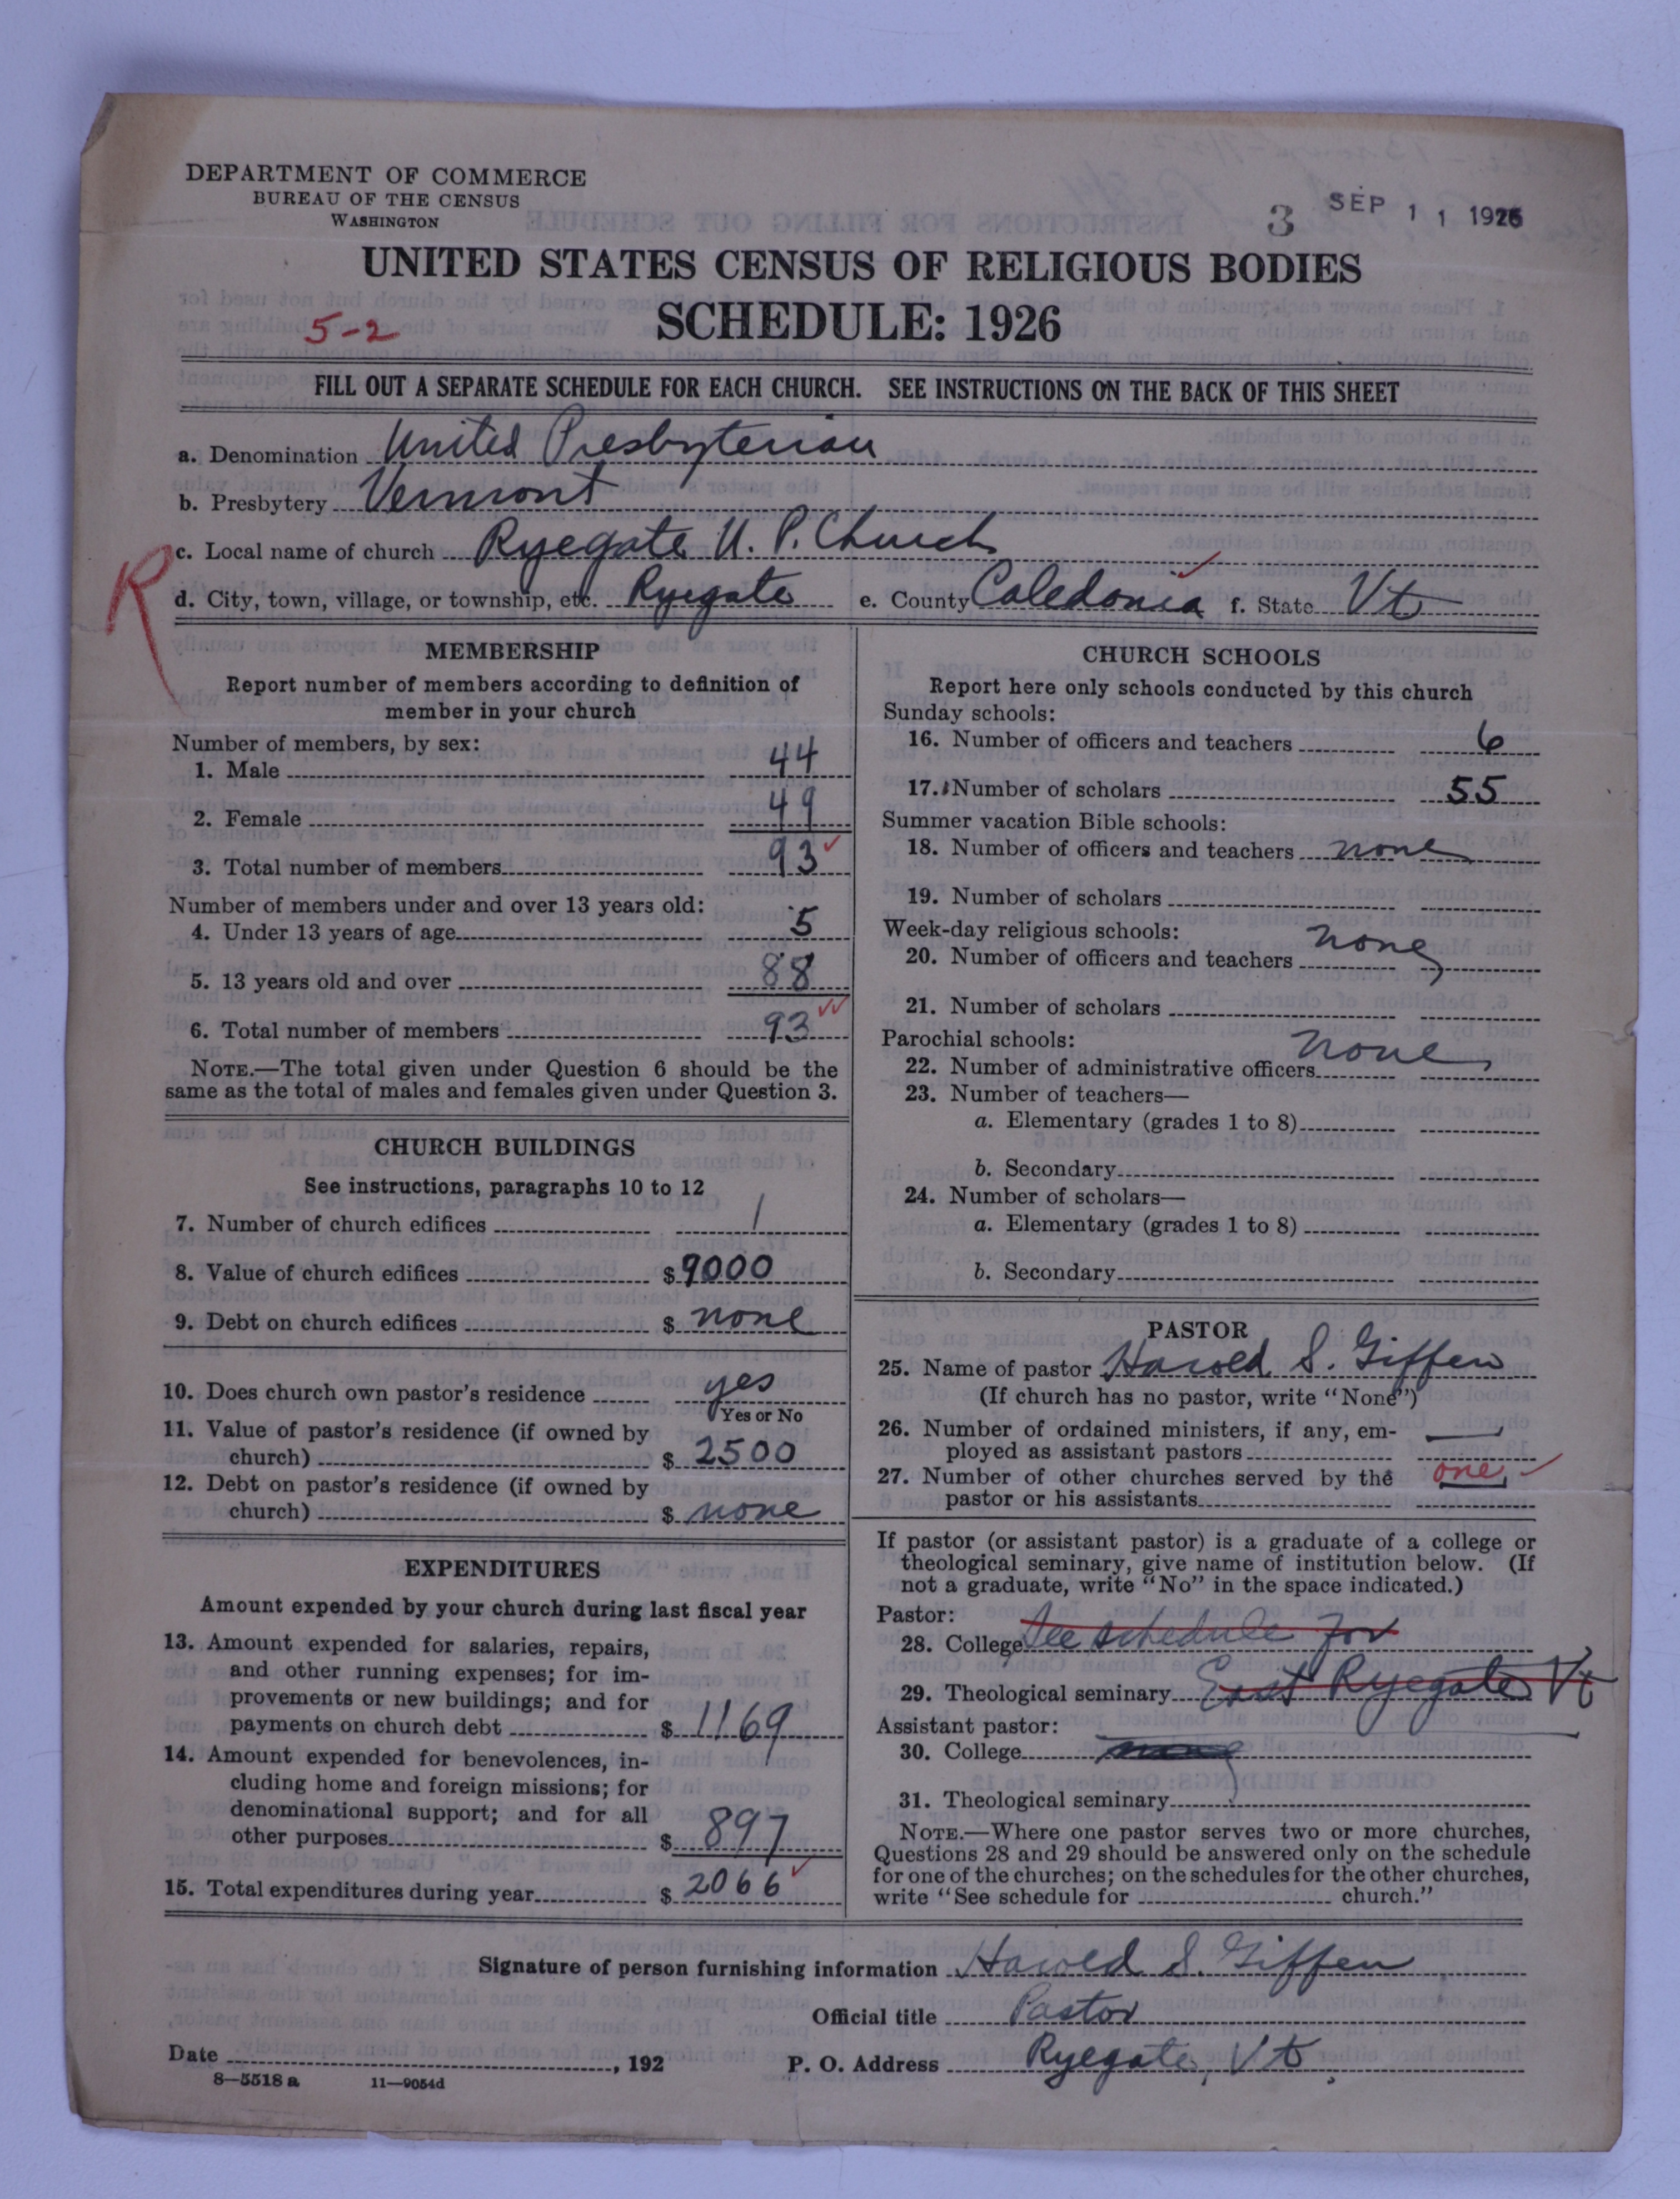 DEPARTMENT OF COMMERCE
BUREAU OF THE CENSUS
WASHINGTON
3 SEP 11 1926
UNITED STATES CENSUS OF RELIGIOUS BODIES
5-2 SCHEDULE: 1926
FILL OUT A SEPARATE SCHEDULE FOR EACH CHURCH. SEE INSTRUCTIONS ON THE BACK OF THIS SHEET
a. Denomination United Presbyterian
b. Presbytery Vermont
R
c. Local name of church Ryegate U. P. Church
d. City, town, village, or township, etc. Ryegate e. County Caledonia f. State Vt
MEMBERSHIP
Report number of members according to definition of
member in your church
Number of members, by sex:
1. Male 44
2. Female 49
3. Total number of members 93
Number of members under and over 13 years old:
4. Under 13 years of age 5
5. 13 years old and over 88
6. Total number of members 93
NOTE.—The total given under Question 6 should be the
same as the total of males and females given under Question 3.
CHURCH BUILDINGS
See instructions, paragraphs 10 to 12
7. Number of church edifices 1
8. Value of church edifices $ 9000
9. Debt on church edifices $ none
10. Does church own pastor's residence yes
Yes or No
11. Value of pastor's residence (if owned by
church) $ 2500
12. Debt on pastor's residence (if owned by
church) $ none
EXPENDITURES
Amount expended by your church during last fiscal year
13. Amount expended for salaries, repairs,
and other running expenses; for im-
provements or new buildings; and for
payments on church debt $ 1169
14. Amount expended for benevolences, in-
cluding home and foreign missions; for
denominational support; and for all
other purposes $ 897
15. Total expenditures during year $ 2066
CHURCH SCHOOLS
Report here only schools conducted by this church
Sunday schools:
16. Number of officers and teachers 6
17. Number of scholars 55
Summer vacation Bible schools:
18. Number of officers and teachers none
19. Number of scholars
Week-day religious schools:
20. Number of officers and teachers none
21. Number of scholars
Parochial schools:
22. Number of administrative officers none
23. Number of teachers—
a. Elementary (grades 1 to 8)
b. Secondary
24. Number of scholars—
a. Elementary (grades 1 to 8)
b. Secondary
PASTOR
25. Name of pastor Harold S. Giffen
(If church has no pastor, write "None")
26. Number of ordained ministers, if any, em-
ployed as assistant pastors —
27. Number of other churches served by the one
pastor or his assistants
If pastor (or assistant pastor) is a graduate of a college or
theological seminary, give name of institution below. (If
not a graduate, write "No" in the space indicated.)
Pastor:
28. College See schedule for
29. Theological seminary East Ryegate Vt
Assistant pastor:
30. College
31. Theological seminary
NOTE.—Where one pastor serves two or more churches,
Questions 28 and 29 should be answered only on the schedule
for one of the churches; on the schedules for the other churches,
write "See schedule for church."
Signature of person furnishing information Harold S. Giffen
Official title Pastor
Date , 192 P. O. Address Ryegate, Vt.
8—5518 a 11—9054d